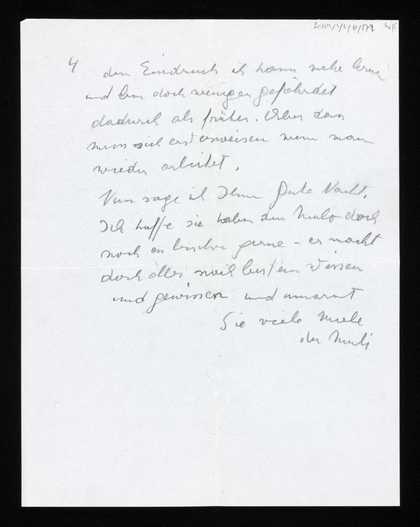 4 den Eindruck ich kann mehr lernen
und bin doch weniger gefährdet
dadurch als früher. Aber das
muss sich erst erweisen wenn man
wieder arbeitet.
Nun sage ich Ihnen Gute Nacht.
Ich hoffe sie haben den doch
noch ein bischen gerne - er macht
doch alles nach bestem Wissen
und Gewissen und umarmt
Sie viele Male
der